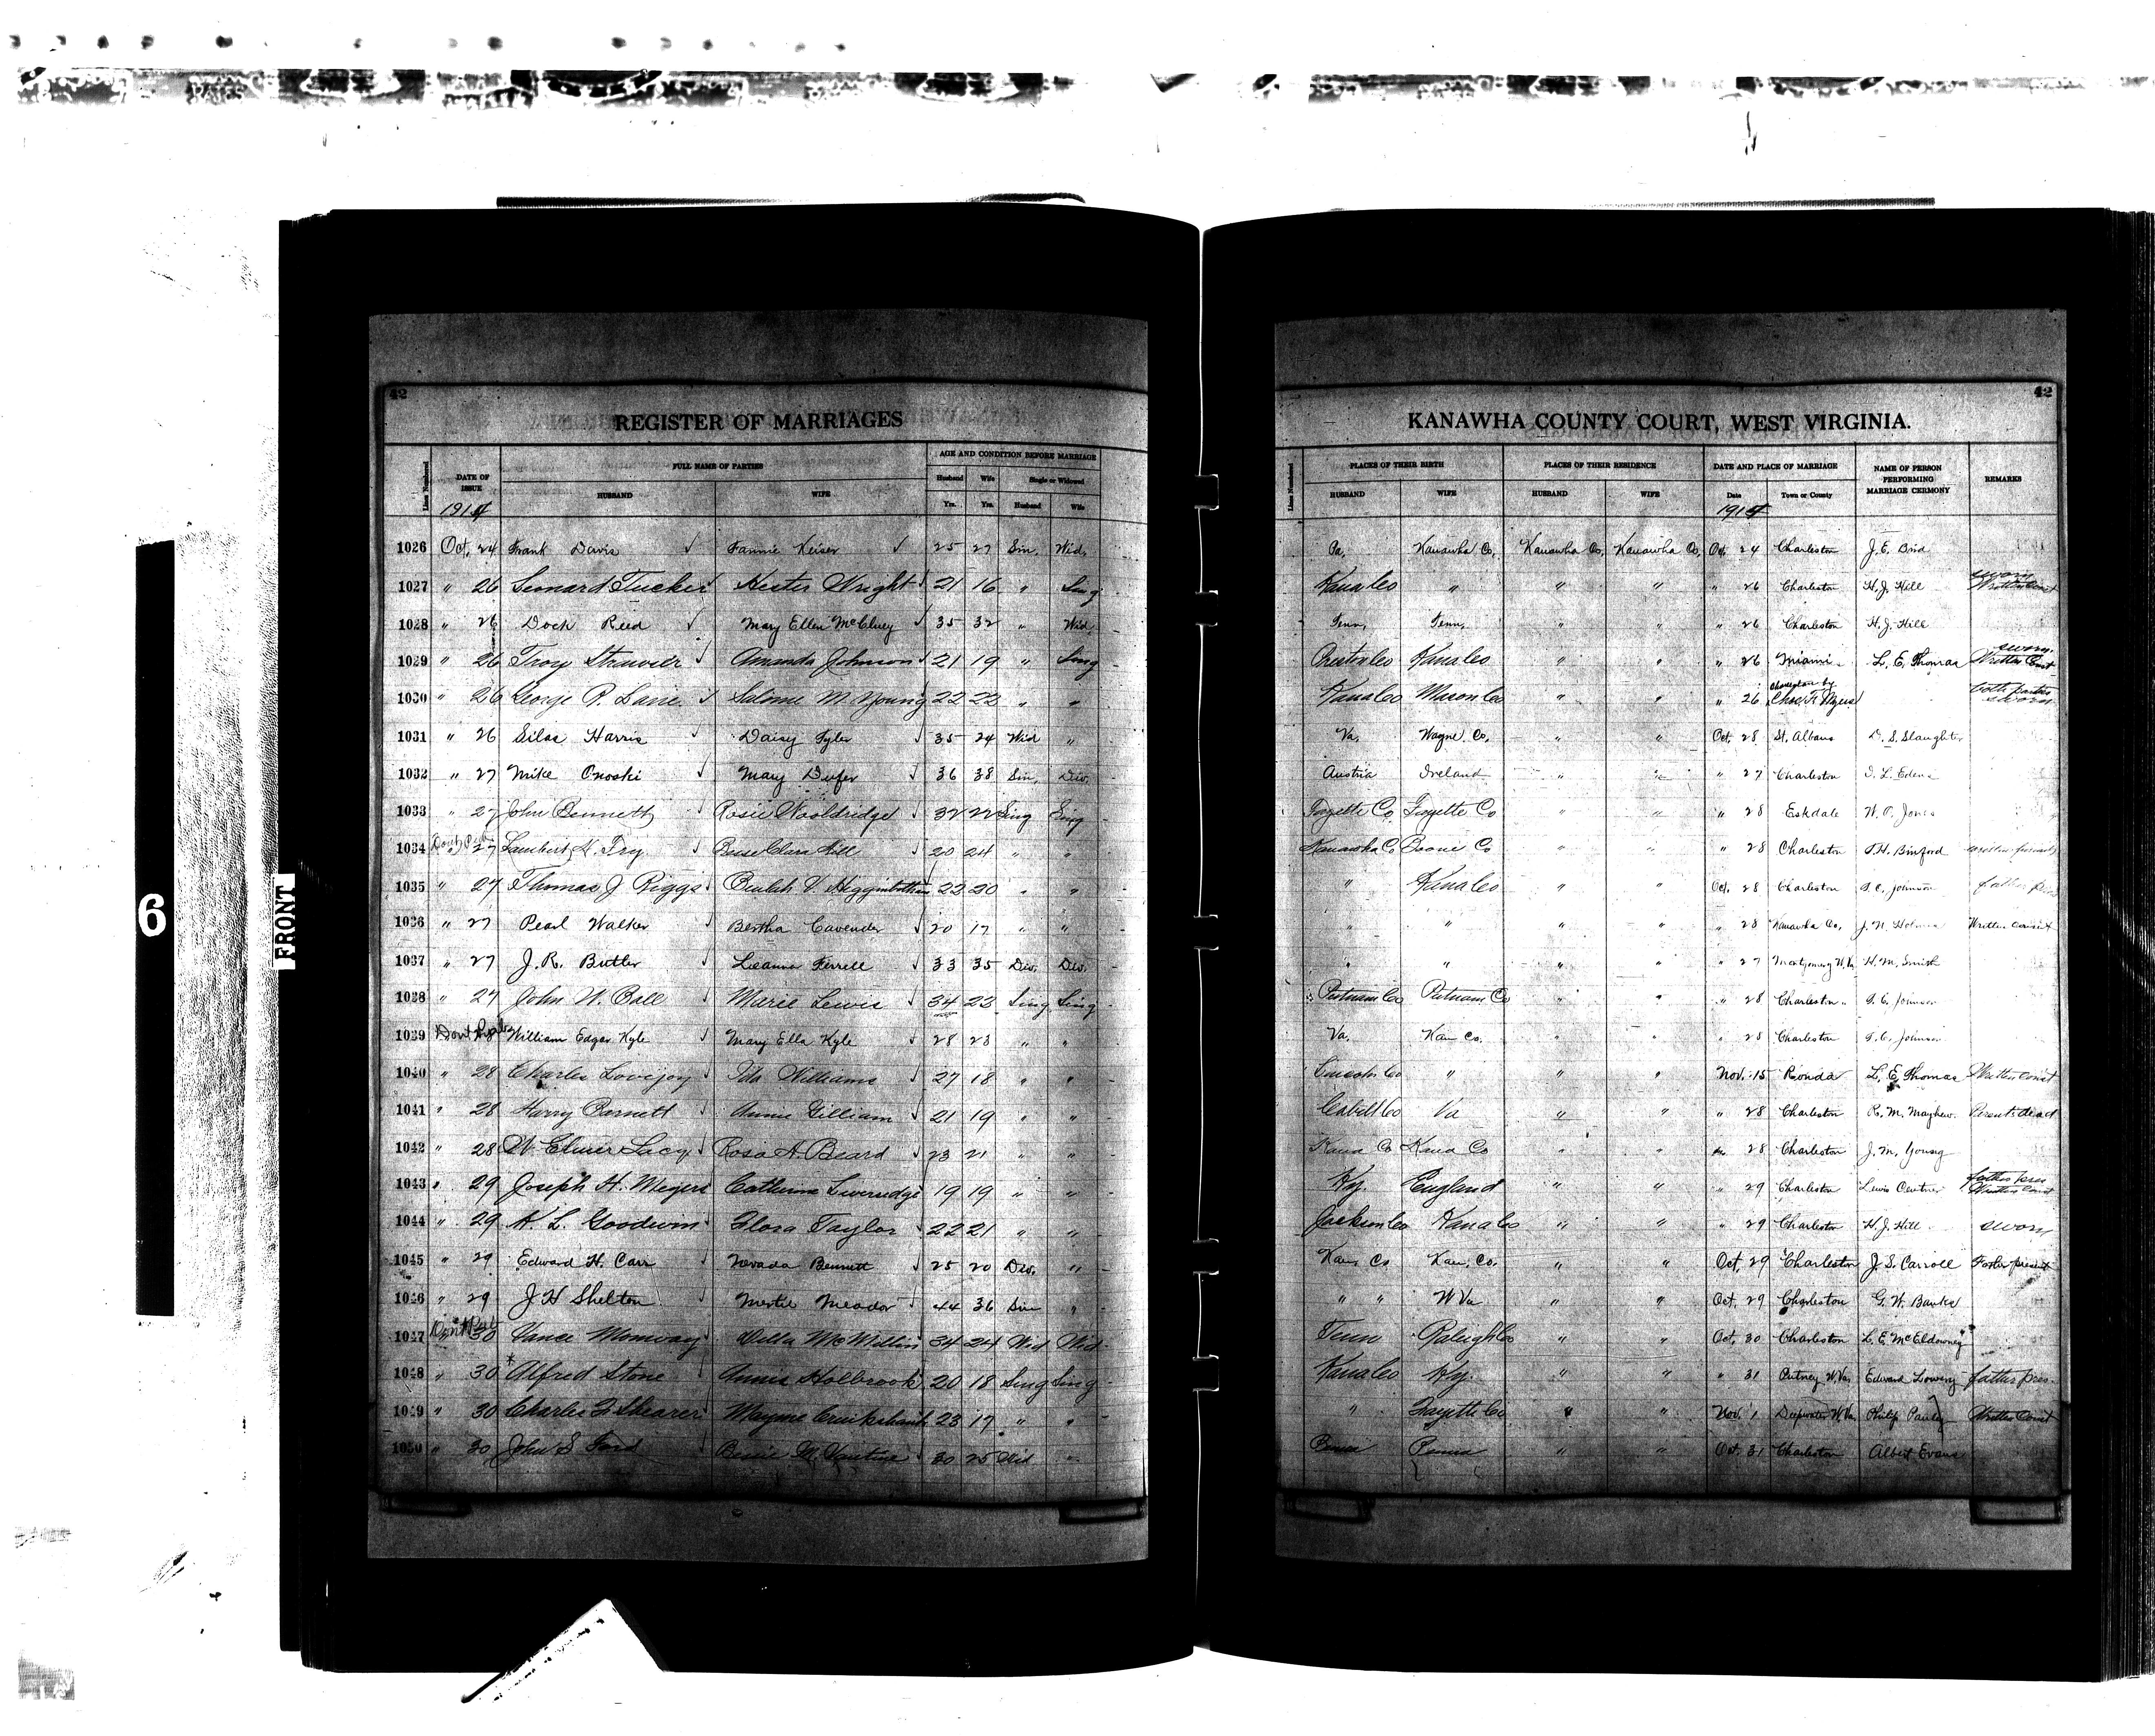 6
FRONT
42
REGISTER OF MARRIAGES
Line Numbered
DATE OF ISSUE
FULL NAME OF PARTIES
AGE AND CONDITION BEFORE MARRIAGE
HUSBAND
WIFE
Husband
Wife
Single or Widowed
Yrs.
Yrs.
Husband
Wife
1914
1026 Oct. 24 Frank Davis Fannie Keiser 25 27 Sin. Wid.
1027 " 26 Lenard Tucker Hester Wright 21 16 " Sing
1028 " 26 Dock Reed Mary Ellen McCluey 35 32 " Wid.
1029 " 26 Troy Struvier Amanda Johnson 21 19 " Sing
1030 " 26 George P. Lane Salome M Young 22 22 " "
1031 " 26 Silas Harris Daisy Tyler 35 24 Wid "
1032 " 27 Mike Onoski Mary Dufer 36 38 Sin. Div.
1033 " 27 John Bennett Rosie Wooldridge 32 22 Sing Sing
1034 " 27 Lambert H. Fry Clara Hill 20 24 " "
1035 " 27 Thomas J Riggs Beulah V. Higginbotham 22 20 " "
1036 " 27 Pearl Walker Bertha Cavender 20 17 " "
1037 " 27 J. R. Butler Leanna Ferrell 33 35 Div. Div.
1038 " 27 John W. Ball Marie Lewis 34 23 Sing Sing
1039 Dont Pub William Edgar Kyle Mary Ella Kyle 28 23 " "
1040 " 28 Charles Lovejoy Ida Williams 27 18 " "
1041 " 28 Harry Barnett Annie Gilliam 21 19 " "
1042 " 28 W. Elmer Lacy Rosa A. Beard 23 21 " "
1043 " 29 Joseph H. Meyers Catherine Liversidge 19 19 " "
1044 " 29 A. L. Goodwin Flora Taylor 22 21 " "
1045 " 29 Edward H. Carr Nevada Bennett 25 20 Div. "
1046 " 29 J H Shelton Mertie Meador 44 36 Sin "
1047 Dont Pub 30 Vance Della McMillin 34 24 Wid Wid
1048 " 30 Alfred Stone Annie Holbrook 20 18 Sing Sing
1049 " 30 Charles F Shearer Mayme Cruikshank 23 17 " "
1050 " 30 John S Ford Bessie M 30 25 Wid "
42
KANAWHA COUNTY COURT, WEST VIRGINIA.
Line Numbered
PLACES OF THEIR BIRTH
PLACES OF THEIR RESIDENCE
DATE AND PLACE OF MARRIAGE
NAME OF PERSON PERFORMING MARRIAGE CERMONY
REMARKS
HUSBAND
WIFE
HUSBAND
WIFE
Date
Town or County
1914
Pa. Kanawha Co. Kanawha Co. Kanawha Co. Oct. 24 Charleston J. E. Bird
Kana Co " " " " 26 Charleston H. J. Hill sworn Written Const
Tenn. Tenn. " " " 26 Charleston H. J. Hill
Preston Co Kana Co " " " 26 Miami L. E. Thomas sworn Written Const
Kana Co Mason Co " " " 26 Charleston by Chas. F. Myers both parties sworn
Va. Wayne Co. " " Oct. 28 St. Albans D. S. Slaughter
Austria Ireland " " " 27 Charleston D. L. Edens
Fayette Co Fayette Co " " " 28 Eskdale W. P. Jones
Kanawha Co Boone Co " " " 28 Charleston T. H. Binford
" Kana Co " " Oct. 28 Charleston T. C. Johnson father pres
" " " " " 28 Kanawha Co. J. N. Holmes Written Consent
" " " " " 27 Montgomery W. Va H. M. Smith
Putnam Co Putnam Co " " " 28 Charleston T. C. Johnson
Va. Kan Co. " " " 28 Charleston T. C. Johnson
Lincoln Co " " " Nov. 15 Ronda L. E. Thomas Written Const
Cabell Co Va " " " 28 Charleston R. M. Mayhew. Parents dead
Kana Co Kana Co " " " 28 Charleston J. M. Young
Ky. England " " " 29 Charleston Lewis Centner father pres Written Const
Jackson Co Kana Co " " " 29 Charleston H. J. Hill sworn
Kan Co Kan. Co. " " Oct. 29 Charleston J. S. Carroll Foster present
" " W Va " " Oct. 29 Charleston G. W. Banks
Tenn Raleigh Co " " Oct. 30 Charleston L. E. McEldowney
Kana Co Ky. " " " 31 Putney W. Va. Edward Lowery father pres.
" Fayette Co " " Nov. 1 Deepwater W. Va Philip Pauley Written Const
Penna Penna " " Oct. 31 Charleston Albert Evans